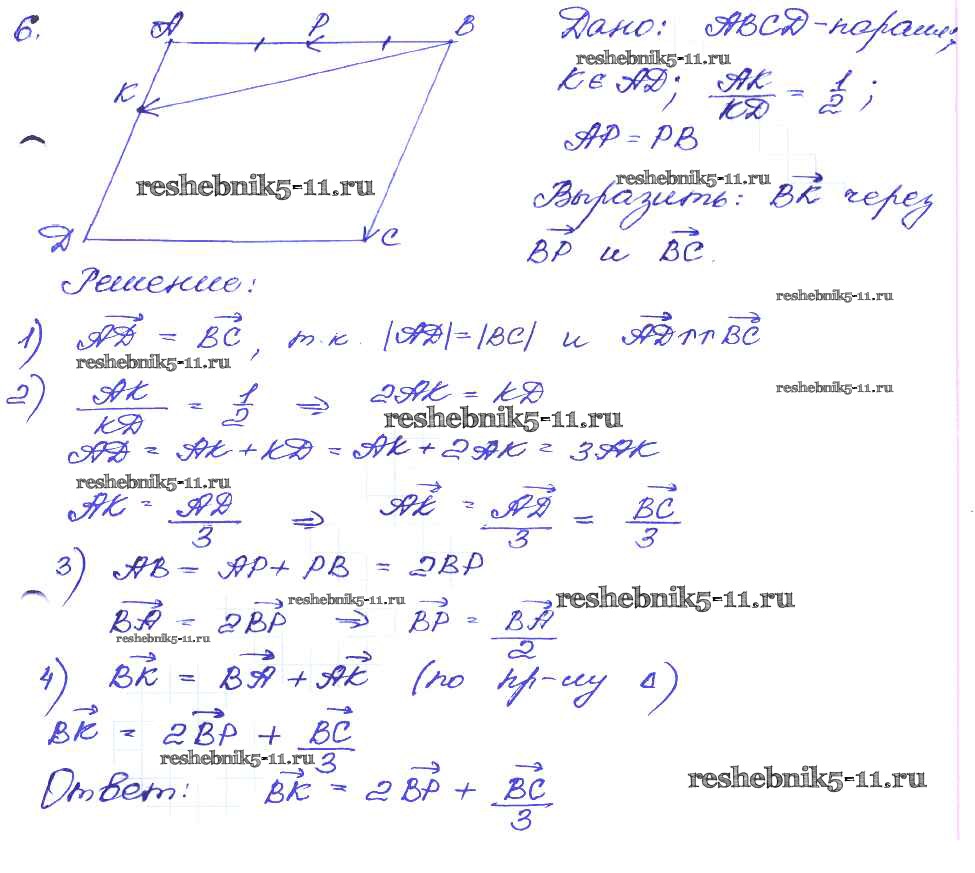 6.
A P B
K
D C
Дано: ABCD - паралл,
reshebnik5-11.ru
K ∈ AD; AK/KD = 1/2;
AP = PB
reshebnik5-11.ru
reshebnik5-11.ru
Выразить: BK⃗ через
BP⃗ и BC⃗.
Решение:
reshebnik5-11.ru
1) AD⃗ = BC⃗, т.к. |AD|=|BC| и AD⃗ ↑↑ BC⃗
reshebnik5-11.ru
2) AK/KD = 1/2 ⇒ 2AK = KD
reshebnik5-11.ru
reshebnik5-11.ru
AD = AK + KD = AK + 2AK = 3AK
reshebnik5-11.ru
AK = AD/3 ⇒ AK⃗ = AD⃗/3 = BC⃗/3
3) AB = AP + PB = 2BP
reshebnik5-11.ru
reshebnik5-11.ru
BA⃗ = 2BP⃗ ⇒ BP⃗ = BA⃗/2
reshebnik5-11.ru
4) BK⃗ = BA⃗ + AK⃗ (по пр-лу Δ)
BK⃗ = 2BP⃗ + BC⃗/3
reshebnik5-11.ru
reshebnik5-11.ru
Ответ: BK⃗ = 2BP⃗ + BC⃗/3